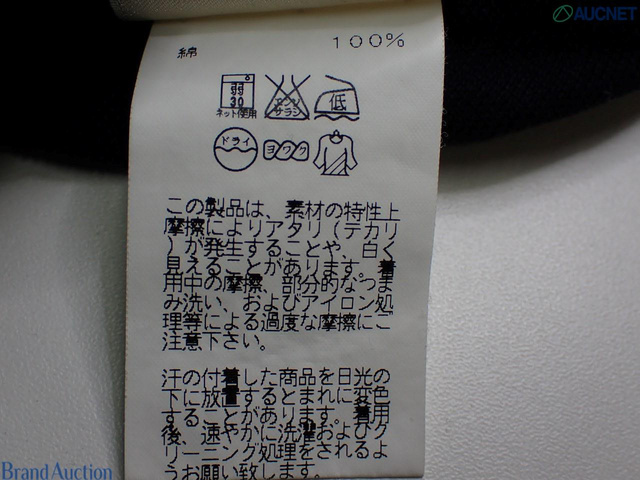 AUCNET
綿 100%
弱
30
ネット使用
エンソ
サラシ
低
ドライ
ヨワク
この製品は、素材の特性上
摩擦によりアタリ(テカリ
)が発生することや、白く
見えることがあります。着
用中の摩擦、部分的なつま
み洗い、およびアイロン処
理等による過度な摩擦にご
注意下さい。
汗の付着した商品を日光の
下に放置するとまれに変色
することがあります。着用
後、速やかに洗濯およびク
リーニング処理をされるよ
うお願い致します。
Brand Auction